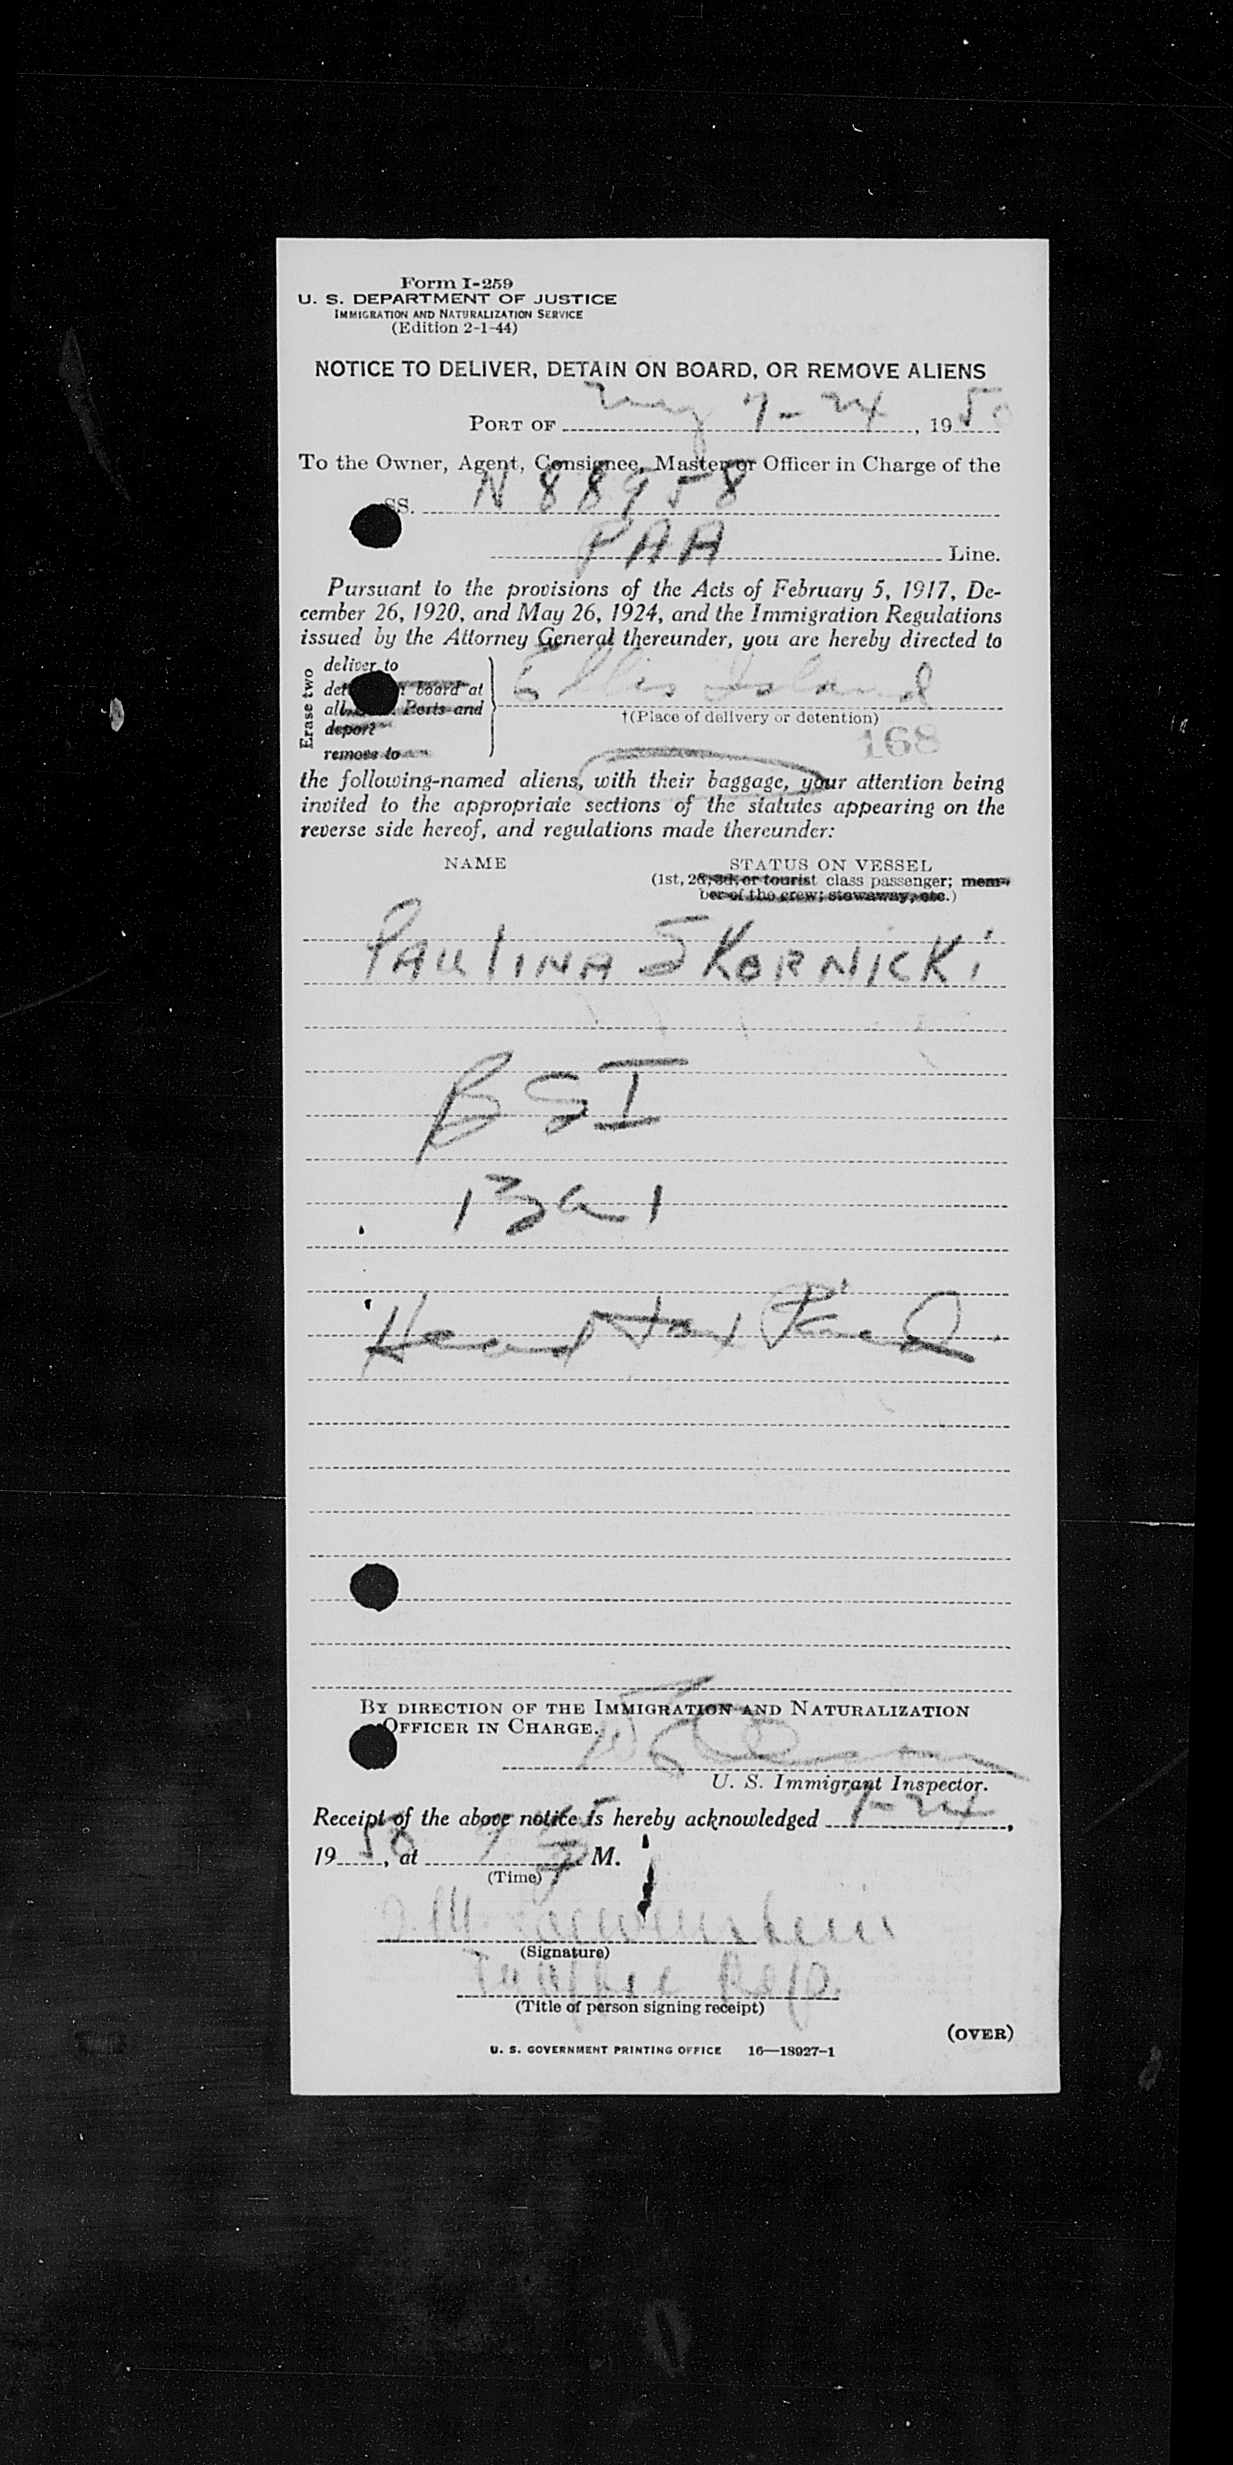 Form I-259
U. S. DEPARTMENT OF JUSTICE
IMMIGRATION AND NATURALIZATION SERVICE
(Edition 2-1-44)
NOTICE TO DELIVER, DETAIN ON BOARD, OR REMOVE ALIENS
PORT OF 7-24, 1950
To the Owner, Agent, Consignee, Master or Officer in Charge of the
SS. N 88958
PAA Line.
Pursuant to the provisions of the Acts of February 5, 1917, De-
cember 26, 1920, and May 26, 1924, and the Immigration Regulations
issued by the Attorney General thereunder, you are hereby directed to
Erase two
deliver to
board at Ellis Island
Ports and
†(Place of delivery or detention)
deport
168
remove to
the following-named aliens, with their baggage, your attention being
invited to the appropriate sections of the statutes appearing on the
reverse side hereof, and regulations made thereunder:
NAME STATUS ON VESSEL
(1st, 2d, 3d, or tourist class passenger; mem-
ber of the crew; stowaway, etc.)
PAULINA SKORNICKI
BSI
Head Tax Paid
BY DIRECTION OF THE IMMIGRATION AND NATURALIZATION
OFFICER IN CHARGE.
U. S. Immigrant Inspector.
Receipt of the above notice is hereby acknowledged 7-24,
1950, at M.
(Time)
(Signature)
Traffic Rep.
(Title of person signing receipt)
(OVER)
U. S. GOVERNMENT PRINTING OFFICE 16—18927-1